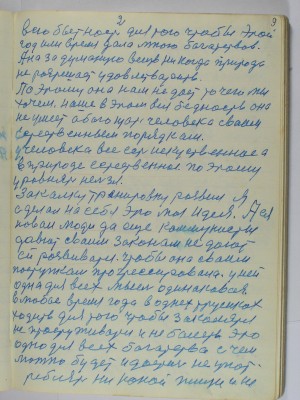 2
3
для того чтобы этой
время дала много богатства.
А на задуманную вещь никогда природа
не разрешает удовлетворить.
По этому она нам не дает то чего мы
хотим. наше в этом вся бедность она
не умеет человека своим
естественным порядкам.
У человека все есть искуственное а
в природе естественное по этому
уровнять нельзя.
Закалку тренировку развил Я
сделал на себе Это моя идея. А ее
новая люди да еще коммунисты
давят своим законам не дают
ей развивать. чтобы она своим
поступкам прогрессировала. у ней
одна для всех мысль одинаковая.
в любое время года в одних трусиках
ходить для того чтобы закалятся
не простуживатся и не болеть Это
одно для всех богатства с чем
можно будет и не упот-
реблять ни какой пищи и не